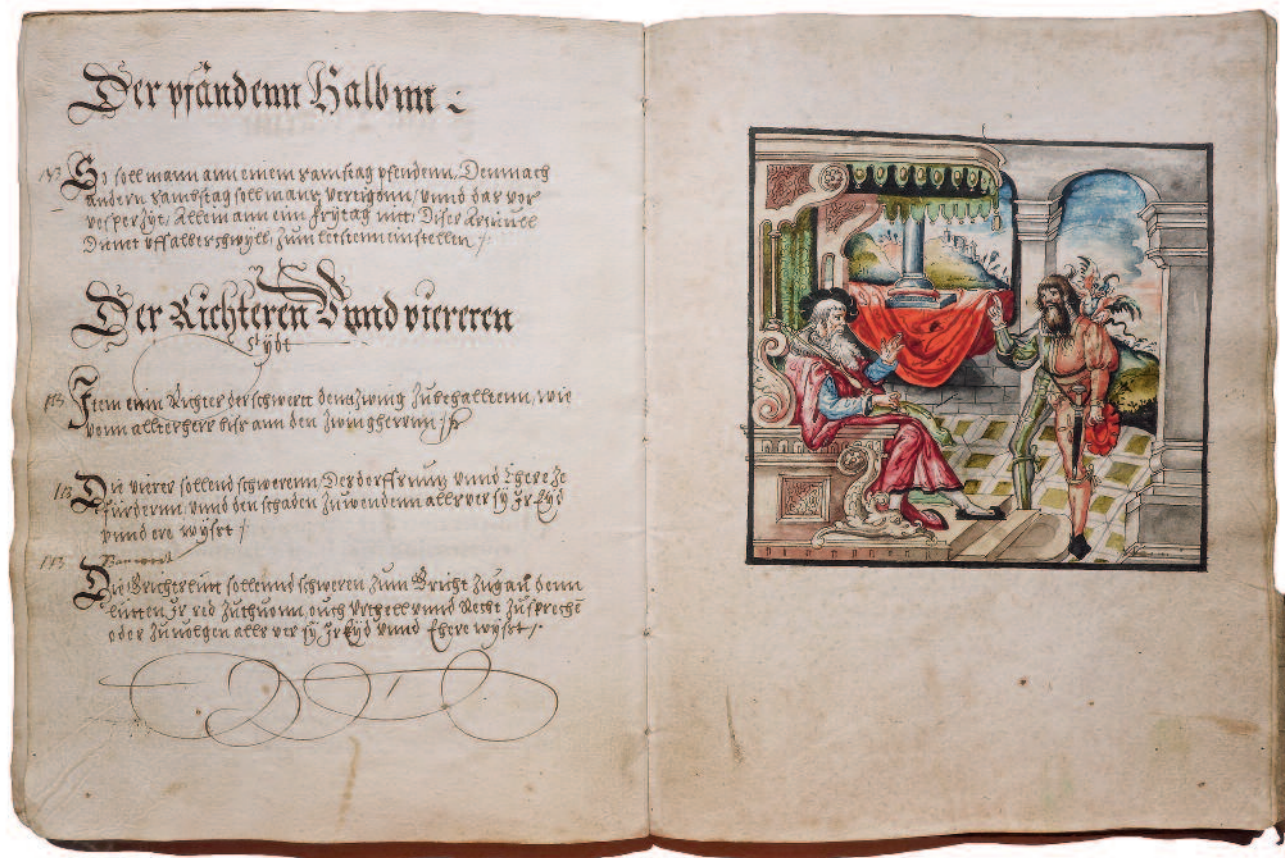 Der pfändenn Halb nn :
So soll mann ann einem samstag pfendenn, Dennach
andern sambstag soll mann vertigonn, vnnd das vor
vesperzyt, Allein ann eim frytag nitt, Diser Artickell
Dienet vff alberschwyll, zum letstenn einstellen /.
Der Richteren Vnnd viereren
Eydt
Item einn Richter der schwert denn Zwing Zubehalltenn, wie
vonn allterherr biss ann den Zwingherrnn /
Die vierer sollend schwerenn, Des dorffs nutz vnnd Ehere ze
fürdernn, vnnd den schaden Zuwendenn alls ver sy Jr Eyd
vnnd ere wyst /
Banwart
Die Grichtslütt sollennd schweren Zum Gricht Zugan denn
lütten Jr red Zuthuonn, ouch Vrthell vnnd Recht Zusprechē
oder Zuuolgen alls ver sy Jr Eyd Vnnd Ehere wyst /.